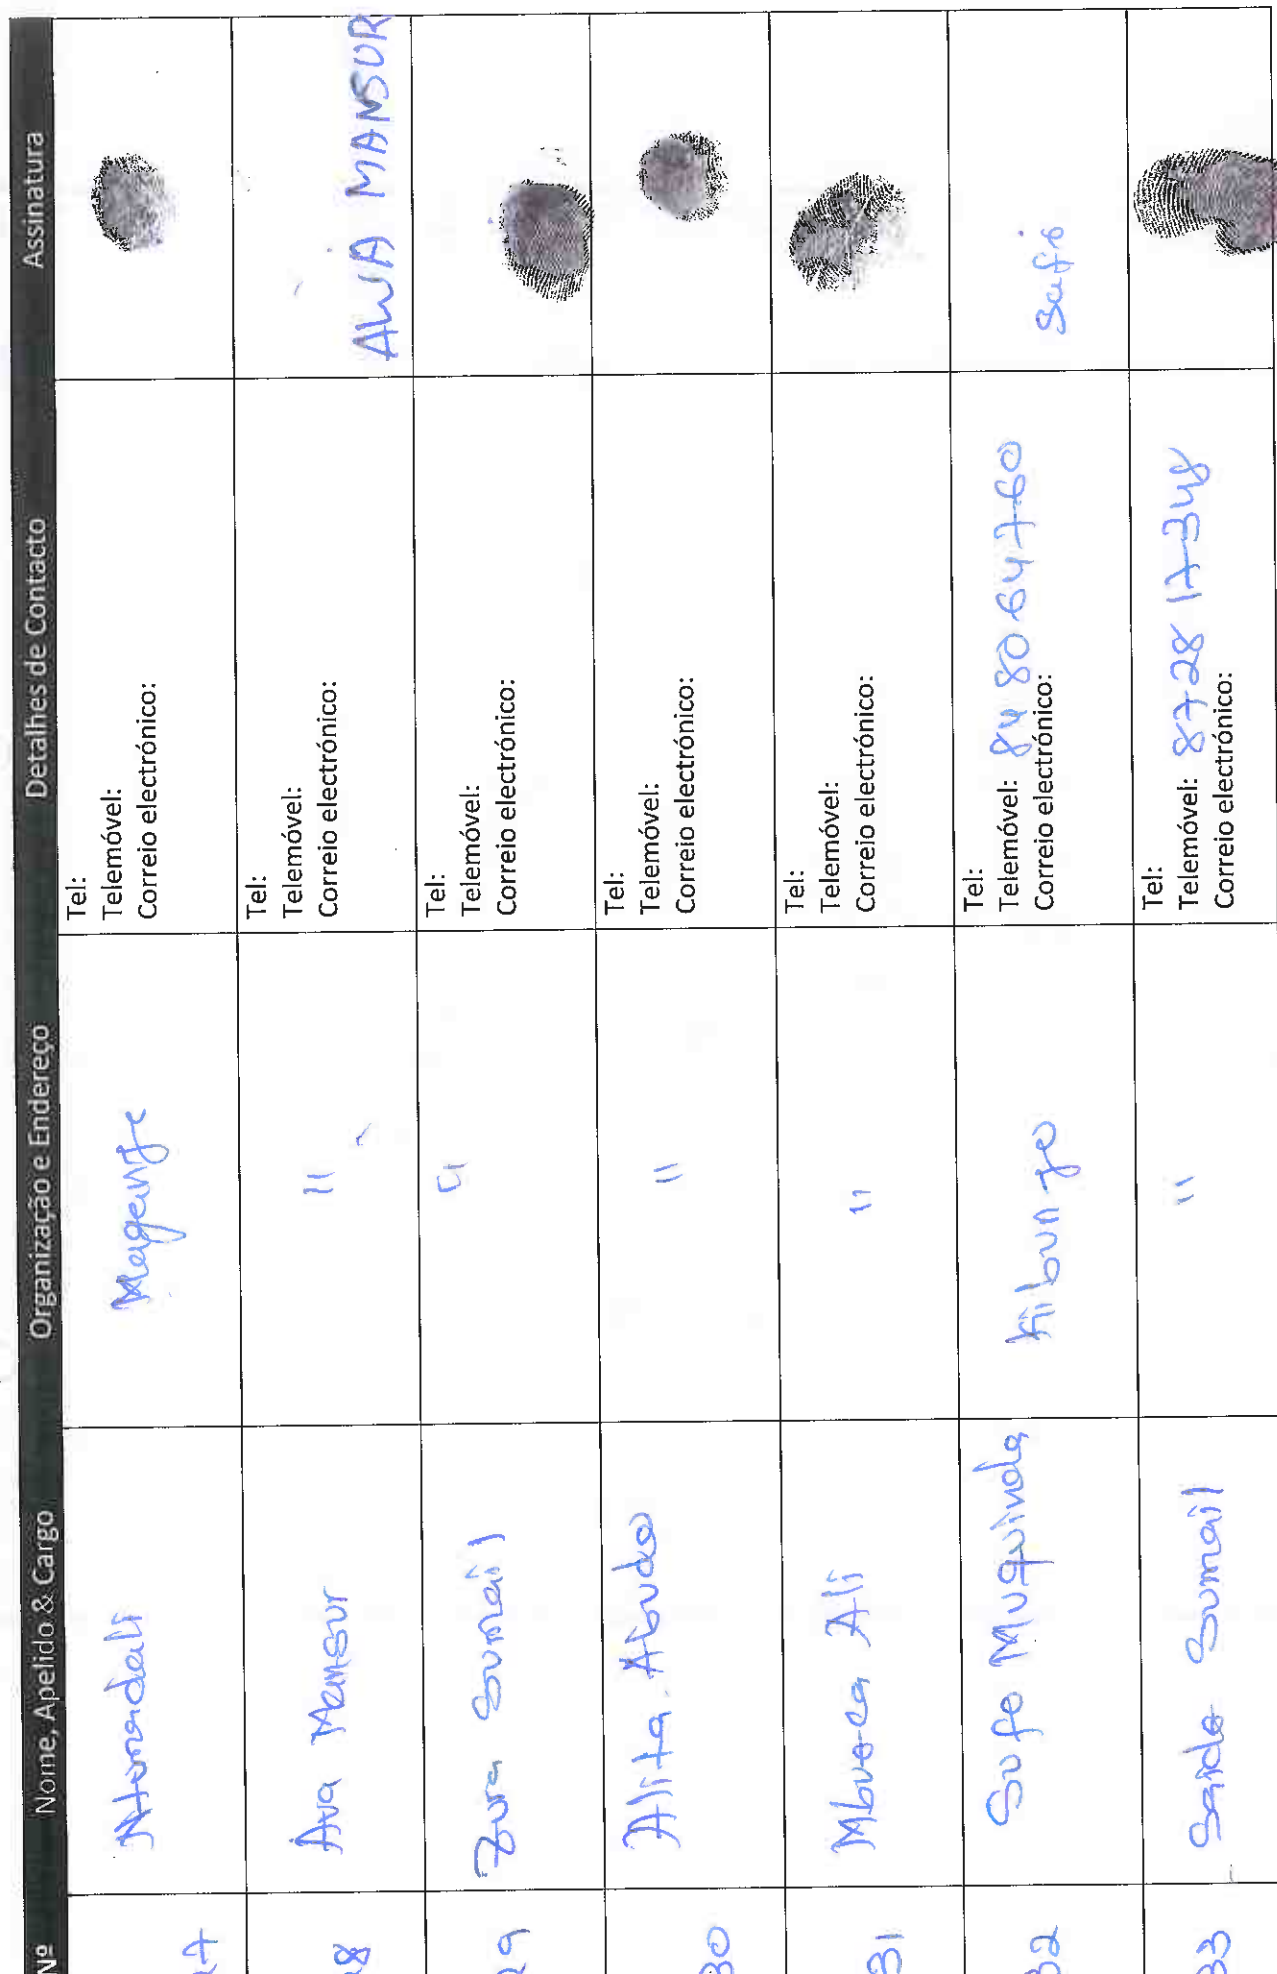 Nº Nome, Apelido & Cargo Organização e Endereço Detalhes de Contacto Assinatura
27
Tel:
Telemóvel:
Correio electrónico:
28 Ava Mansur 11
Tel:
Telemóvel:
Correio electrónico:
AWA MANSUR
29 Zura Sumail
Tel:
Telemóvel:
Correio electrónico:
30 Alita Abudo 11
Tel:
Telemóvel:
Correio electrónico:
31 Ali 11
Tel:
Telemóvel:
Correio electrónico:
32 Sufo Muquinda Kibunjo
Tel:
Telemóvel: 84 80 64 760
Correio electrónico:
33 Saide Sumail 11
Tel:
Telemóvel: 87 28 17 348
Correio electrónico: